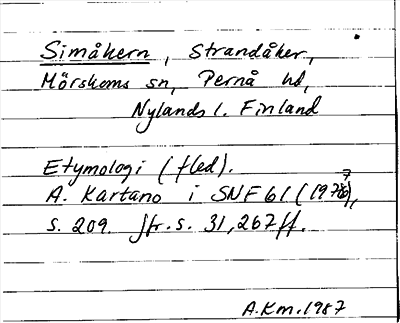 Simåkern, Strandåker,
Mörskoms sn, Pernå hd,
Nylands l. Finland
Etymologi (fled).
A. Kartano i SNF 61 (1977),
s. 209. Jfr. s. 31, 267 ff.
A.Km. 1987